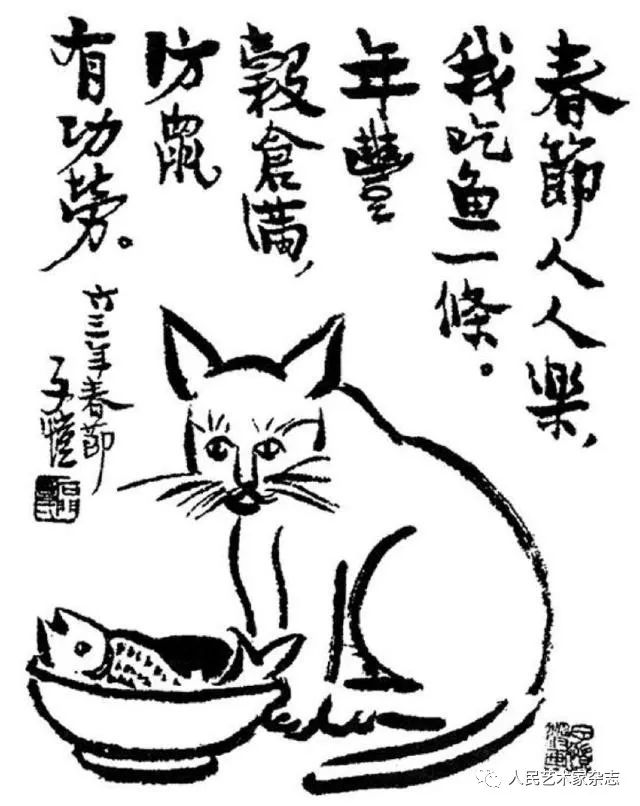 春節人人樂，
我吃鱼一條。
年豐
穀倉滿，
防鼠
有功勞。
六三年春節
子愷
人民艺术家杂志